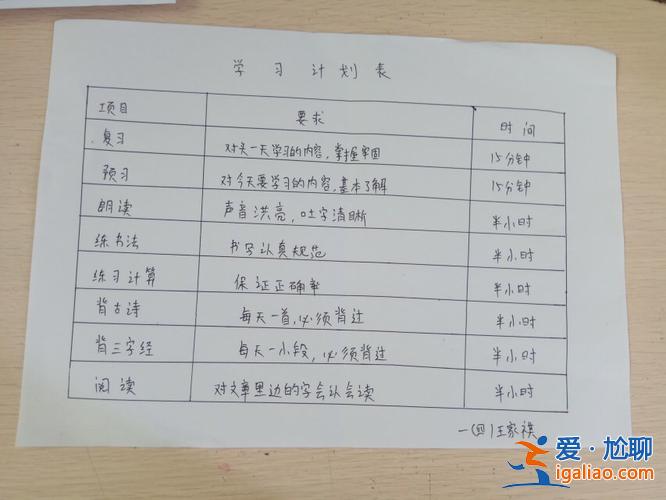 学习计划表
项目 要求 时间
复习 对头一天学习的内容,掌握牢固 15分钟
预习 对今天要学习的内容,基本了解 15分钟
朗读 声音洪亮,吐字清晰 半小时
练书法 书写认真规范 半小时
练习计算 保证正确率 半小时
背古诗 每天一首,必须背过 半小时
背三字经 每天一小段,必须背过 半小时
阅读 对文章里边的字会认会读 半小时
一(四)王家祺
爱·尬聊
igaliao.com